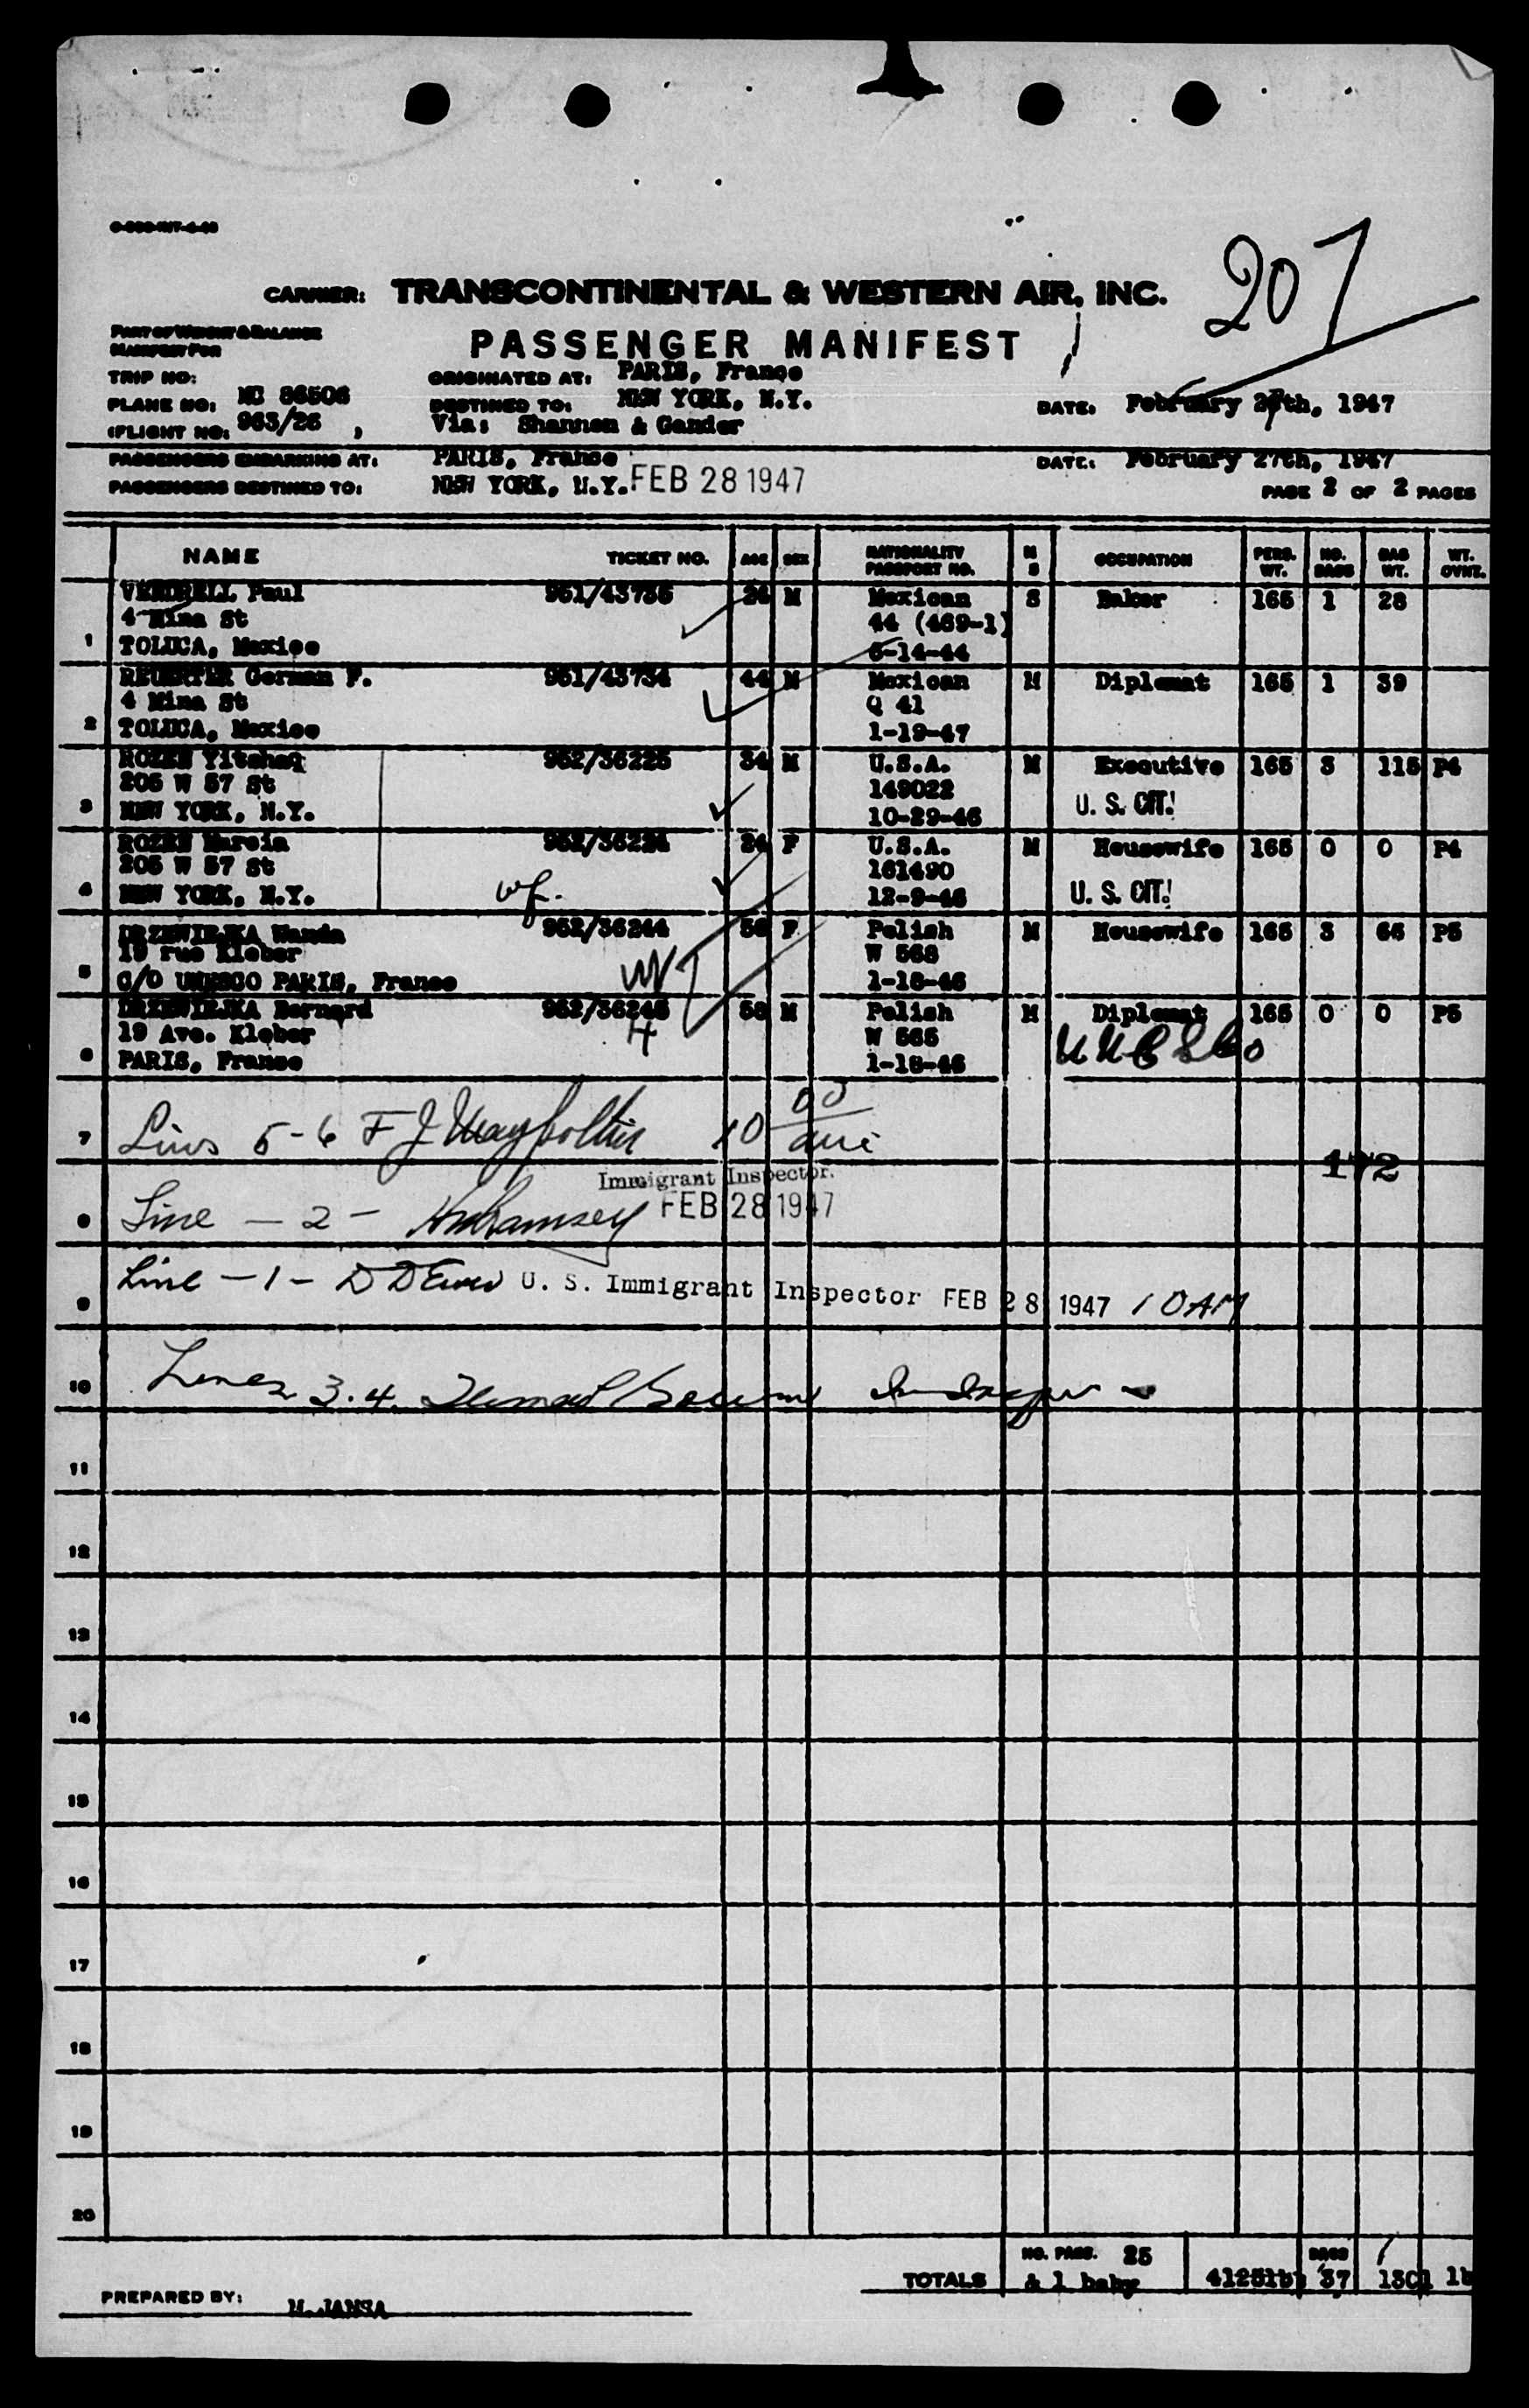 CARRIER: TRANSCONTINENTAL & WESTERN AIR, INC.
207
PART OF WEIGHT & BALANCE
MANIFEST FOR
PASSENGER MANIFEST
TRIP NO:
ORIGINATED AT: PARIS, France
PLANE NO: NC 86506
DESTINED TO: NEW YORK, N.Y.
DATE: February 27th, 1947
(FLIGHT NO: 963/26 )
Via: Shannon & Gander
PASSENGERS EMBARKING AT: PARIS, France
DATE: February 27th, 1947
PASSENGERS DESTINED TO: NEW YORK, N.Y. FEB 28 1947
PAGE 2 OF 2 PAGES
NAME TICKET NO. AGE SEX NATIONALITY PASSPORT NO. M S OCCUPATION PERS. WT. NO. BAGS BAG WT. WT. OVHT.
VENDRELL Paul 951/43735 26 M Mexican S Baker 165 1 28
4 Mina St 44 (469-1)
1 TOLUCA, Mexico 5-14-44
German F. 951/43734 44 M Mexican M Diplomat 165 1 39
4 Mina St Q 41
2 TOLUCA, Mexico 1-19-47
ROZEN Yitchaq 952/36225 34 M U.S.A. M Executive 165 3 115 P4
205 W 57 St 149022
3 NEW YORK, N.Y. 10-29-46 U. S. CIT.
ROZEN Marcia 952/36224 24 F U.S.A. M Housewife 165 0 0 P4
205 W 57 St 161490
4 NEW YORK, N.Y. wf. 12-9-46 U. S. CIT.
DRZEWIEJKA Wanda 952/36244 56 F Polish M Housewife 165 3 66 P5
19 rue Kleber W 568
5 C/O UNESCO PARIS, France 1-18-46
DRZEWIEJKA Bernard 952/36245 58 M Polish M Diplomat 165 0 0 P5
19 Ave. Kleber 4 W 565 UNESCO
6 PARIS, France 1-18-46
7 Lines 5-6 F J 10 00
172
Immigrant Inspector.
8 Line - 2 - Ramsey FEB 28 1947
9 Line - 1 - D D U. S. Immigrant Inspector FEB 28 1947 10 AM
10 Lines 3.4.
11
12
13
14
15
16
17
18
19
20
NO. PASS. 25 BAGS
TOTALS & 1 baby 4125lbs 37 1301 lb
PREPARED BY: M. JANSA